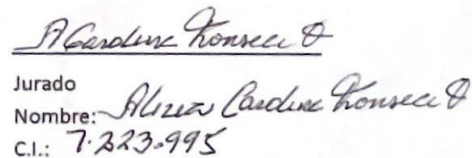 A Carduxe Fonseca O
Jurado
Nombre: Alizia Carduxe Fonseca O
C.I.: 7.223.995